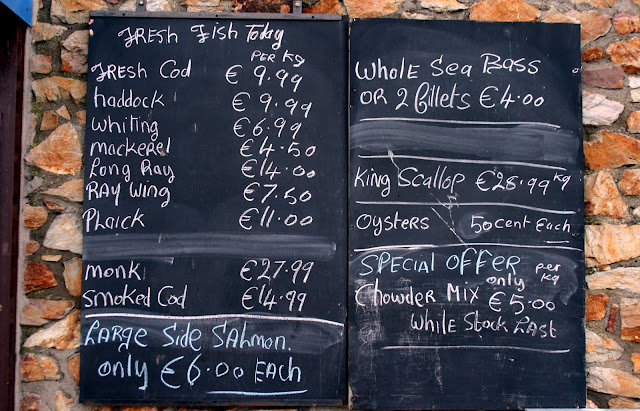 FRESH Fish Today
PER Kg
FRESH Cod € 9.99
haddock € 9.99
whiting € 6.99
mackerel € 4.50
Long Ray € 14.00
RAY WING € 7.50
Plaick € 11.00
monk € 27.99
Smoked Cod € 14.99
LARGE Side SAlmon.
only €6.00 EACH
Whole Sea BASS
OR 2 fillets €4.00
King Scallop €28.99 Kg
OYSTERS 50cent Each
SPECIAL OFFER per Kg
only
Chowder MIX €5.00
While Stock Last